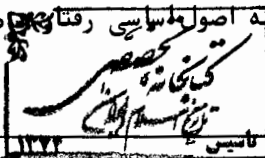 ه اصول اساسی رفتار
کتابخانه تخصصی
تاریخ اسلام و ایران
تاسیس ۱۳۷۴